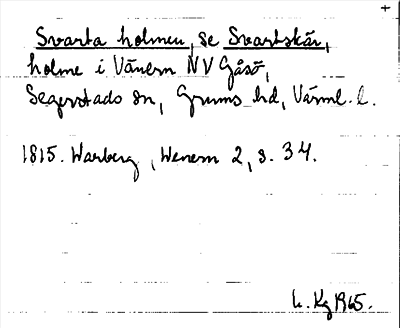 +
Svarta holmen, se Svartskär,
holme i Vänern NV Gåsö,
Segerstads sn, Grums hd, Värml. l.
1815. Warberg, Wenern 2, s. 34.
L. Kg 1965.